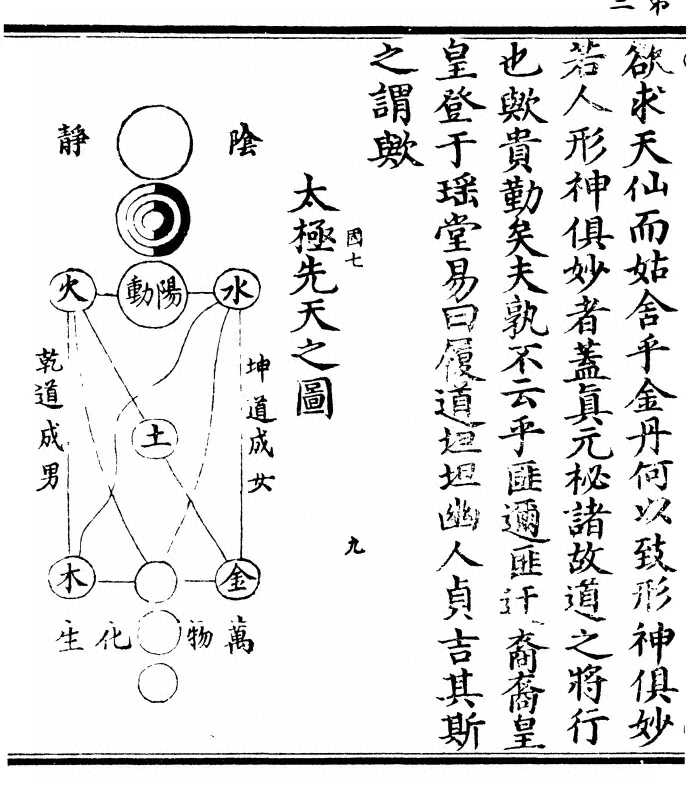 欲求天仙而姑舍乎金丹何以致形神俱妙
若人形神俱妙者蓋眞元秘諸故道之將行
也歟貴勤矣夫孰不云乎匪邇匪迂裔裔皇
皇登于瑶堂易曰履道坦坦幽人貞吉其斯
之謂歟
國七
九
太極先天之圖
陰
靜
陽動
水
火
坤道成女
乾道成男
土
金
木
萬物化生